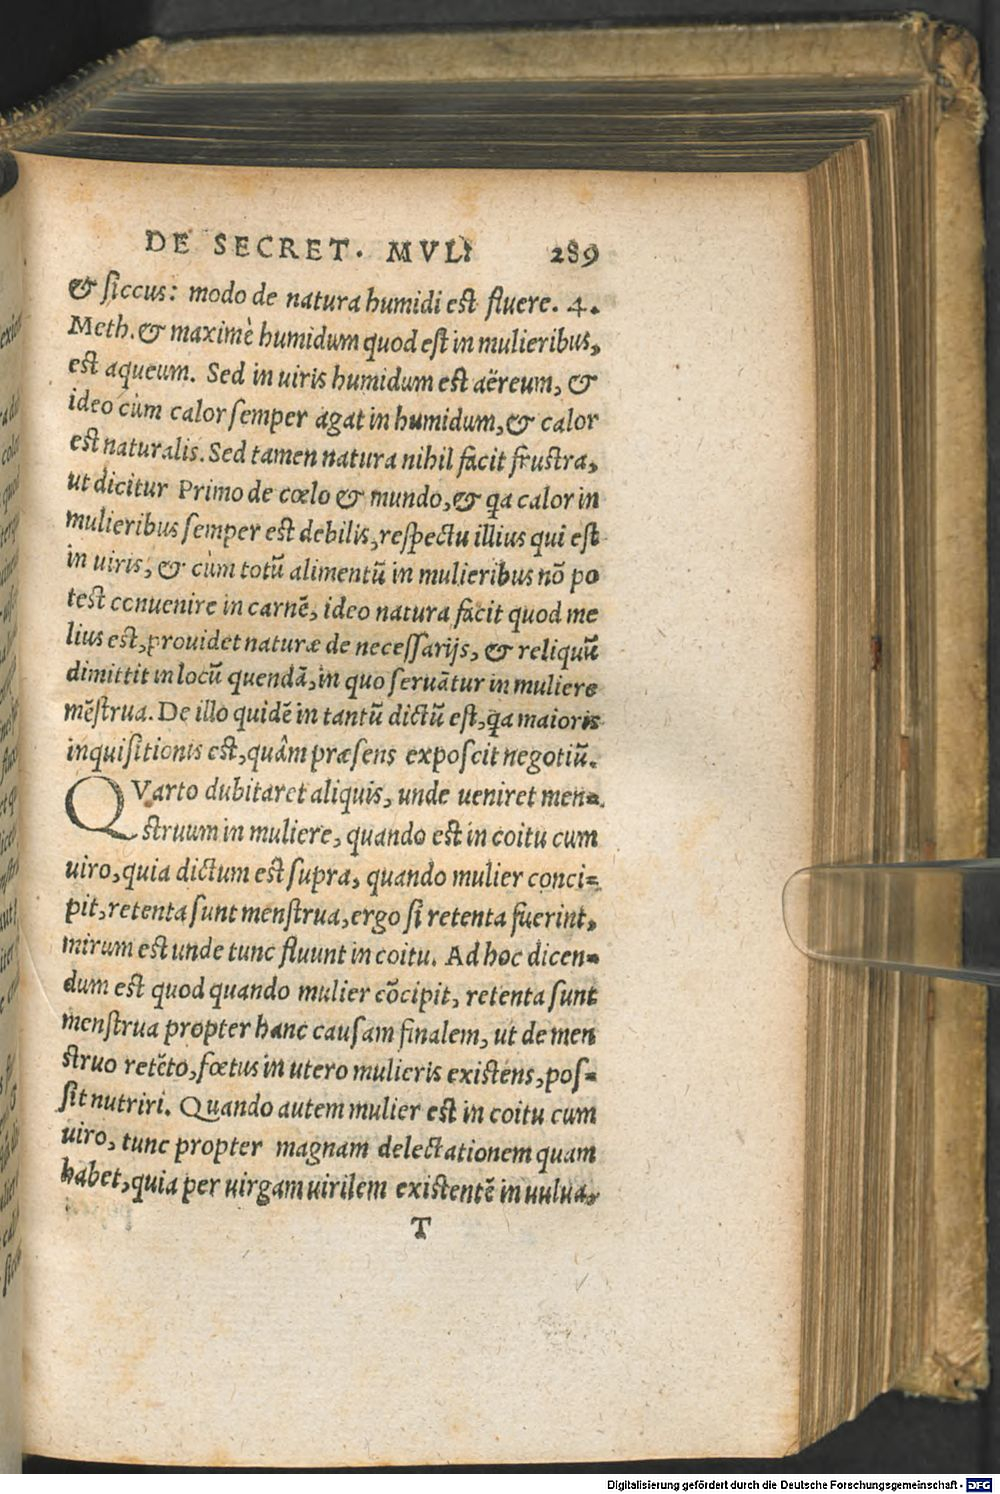 DE SECRET. MVLI 289
& siccus: modo de natura humidi est fluere. 4.
Meth. & maximè humidum quod est in mulieribus,
est aqueum. Sed in uiris humidum est aëreum, &
ideo cùm calor semper agat in humidum, & calor
est naturalis. Sed tamen natura nihil facit frustra,
ut dicitur Primo de cœlo & mundo, & qa calor in
mulieribus semper est debilis, respectu illius qui est
in uiris, & cùm totũ alimentũ in mulieribus nõ po
test conuenire in carnẽ, ideo natura facit quod me
lius est, prouidet naturæ de necessarijs, & reliquũ
dimittit in locũ quendã, in quo seruãtur in muliere
mẽstrua. De illo quidẽ in tantũ dictũ est, qa maioris
inquisitionis est, quâm præsens exposcit negotiũ.
QVarto dubitaret aliquis, unde ueniret men=
struum in muliere, quando est in coitu cum
uiro, quia dictum est supra, quando mulier conci=
pit, retenta sunt menstrua, ergo si retenta fuerint,
mirum est unde tunc fluunt in coitu. Ad hoc dicen=
dum est quod quando mulier cõcipit, retenta sunt
menstrua propter hanc causam finalem, ut de men
struo retẽto, fœtus in utero mulieris existens, pos=
sit nutriri. Quando autem mulier est in coitu cum
uiro, tunc propter magnam delectationem quam
habet, quia per uirgam uirilem existentẽ in uulua,
T
Digitalisierung gefördert durch die Deutsche Forschungsgemeinschaft - DFG